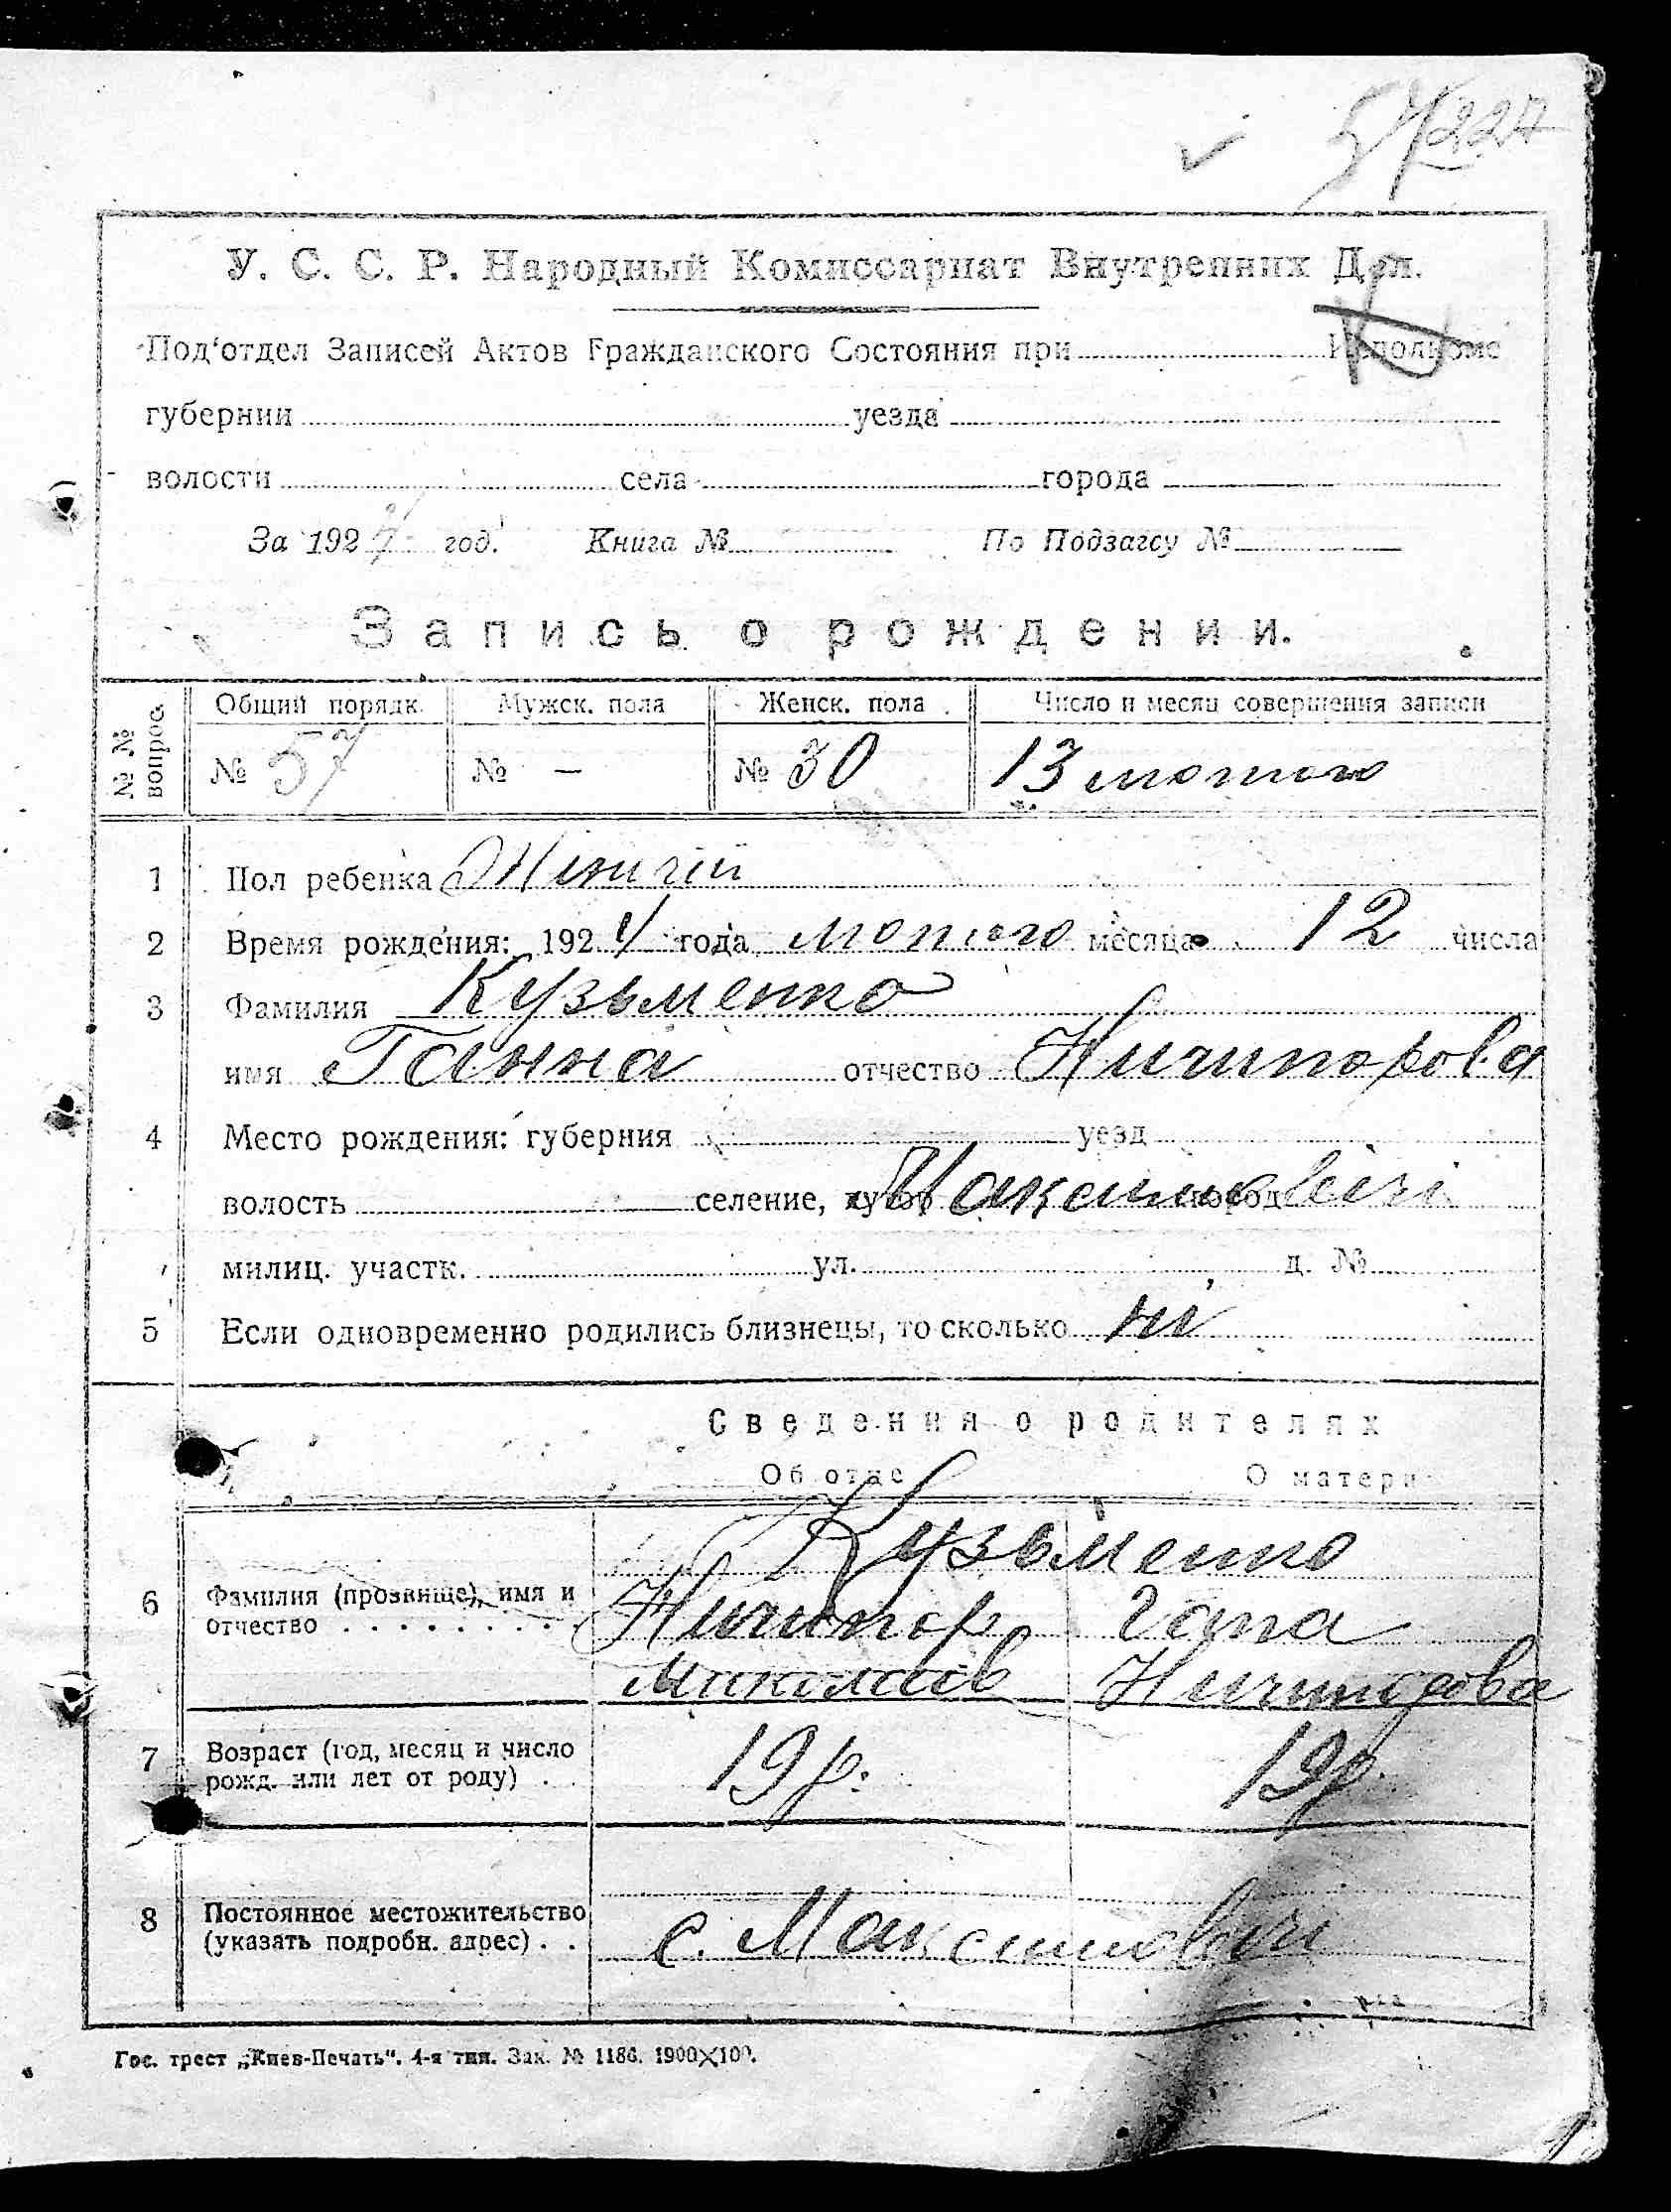 57 227
У. С. С. Р. Народный Комиссариат Внутренних Дел.
Под'отдел Записей Актов Гражданского Состояния при Исполкоме
губернии уезда
волости села города
За 192 год. Книга № По Подзагсу №
Запись о рождении.
№ № вопрос. Общий порядк. Мужск. пола Женск. пола Число и месяц совершения записи
№ 57 № — № 30 13 лютого
1 Пол ребенка Жіночий
2 Время рождения: 1924 года лютого месяца 12 числа
3 Фамилия Кузьменко
имя Ганна отчество Ничипорова
4 Место рождения: губерния уезд
волость селение, хутор город Максимовичі
милиц. участк. ул. д. №
5 Если одновременно родились близнецы, то сколько ні
Сведения о родителях
Об отце О матери
Кузьменко
6 Фамилия (прозвище), имя и Ничипор Гапа
отчество . . . . . . . . Миколаїв Ничипорова
7 Возраст (год, месяц и число 19 р. 19 р.
рожд. или лет от роду) . .
8 Постоянное местожительство
(указать подробн. адрес) . . с. Максимовичі
Гос. трест „Киев-Печать". 4-я тип. Зак. № 1186. 1900×100.